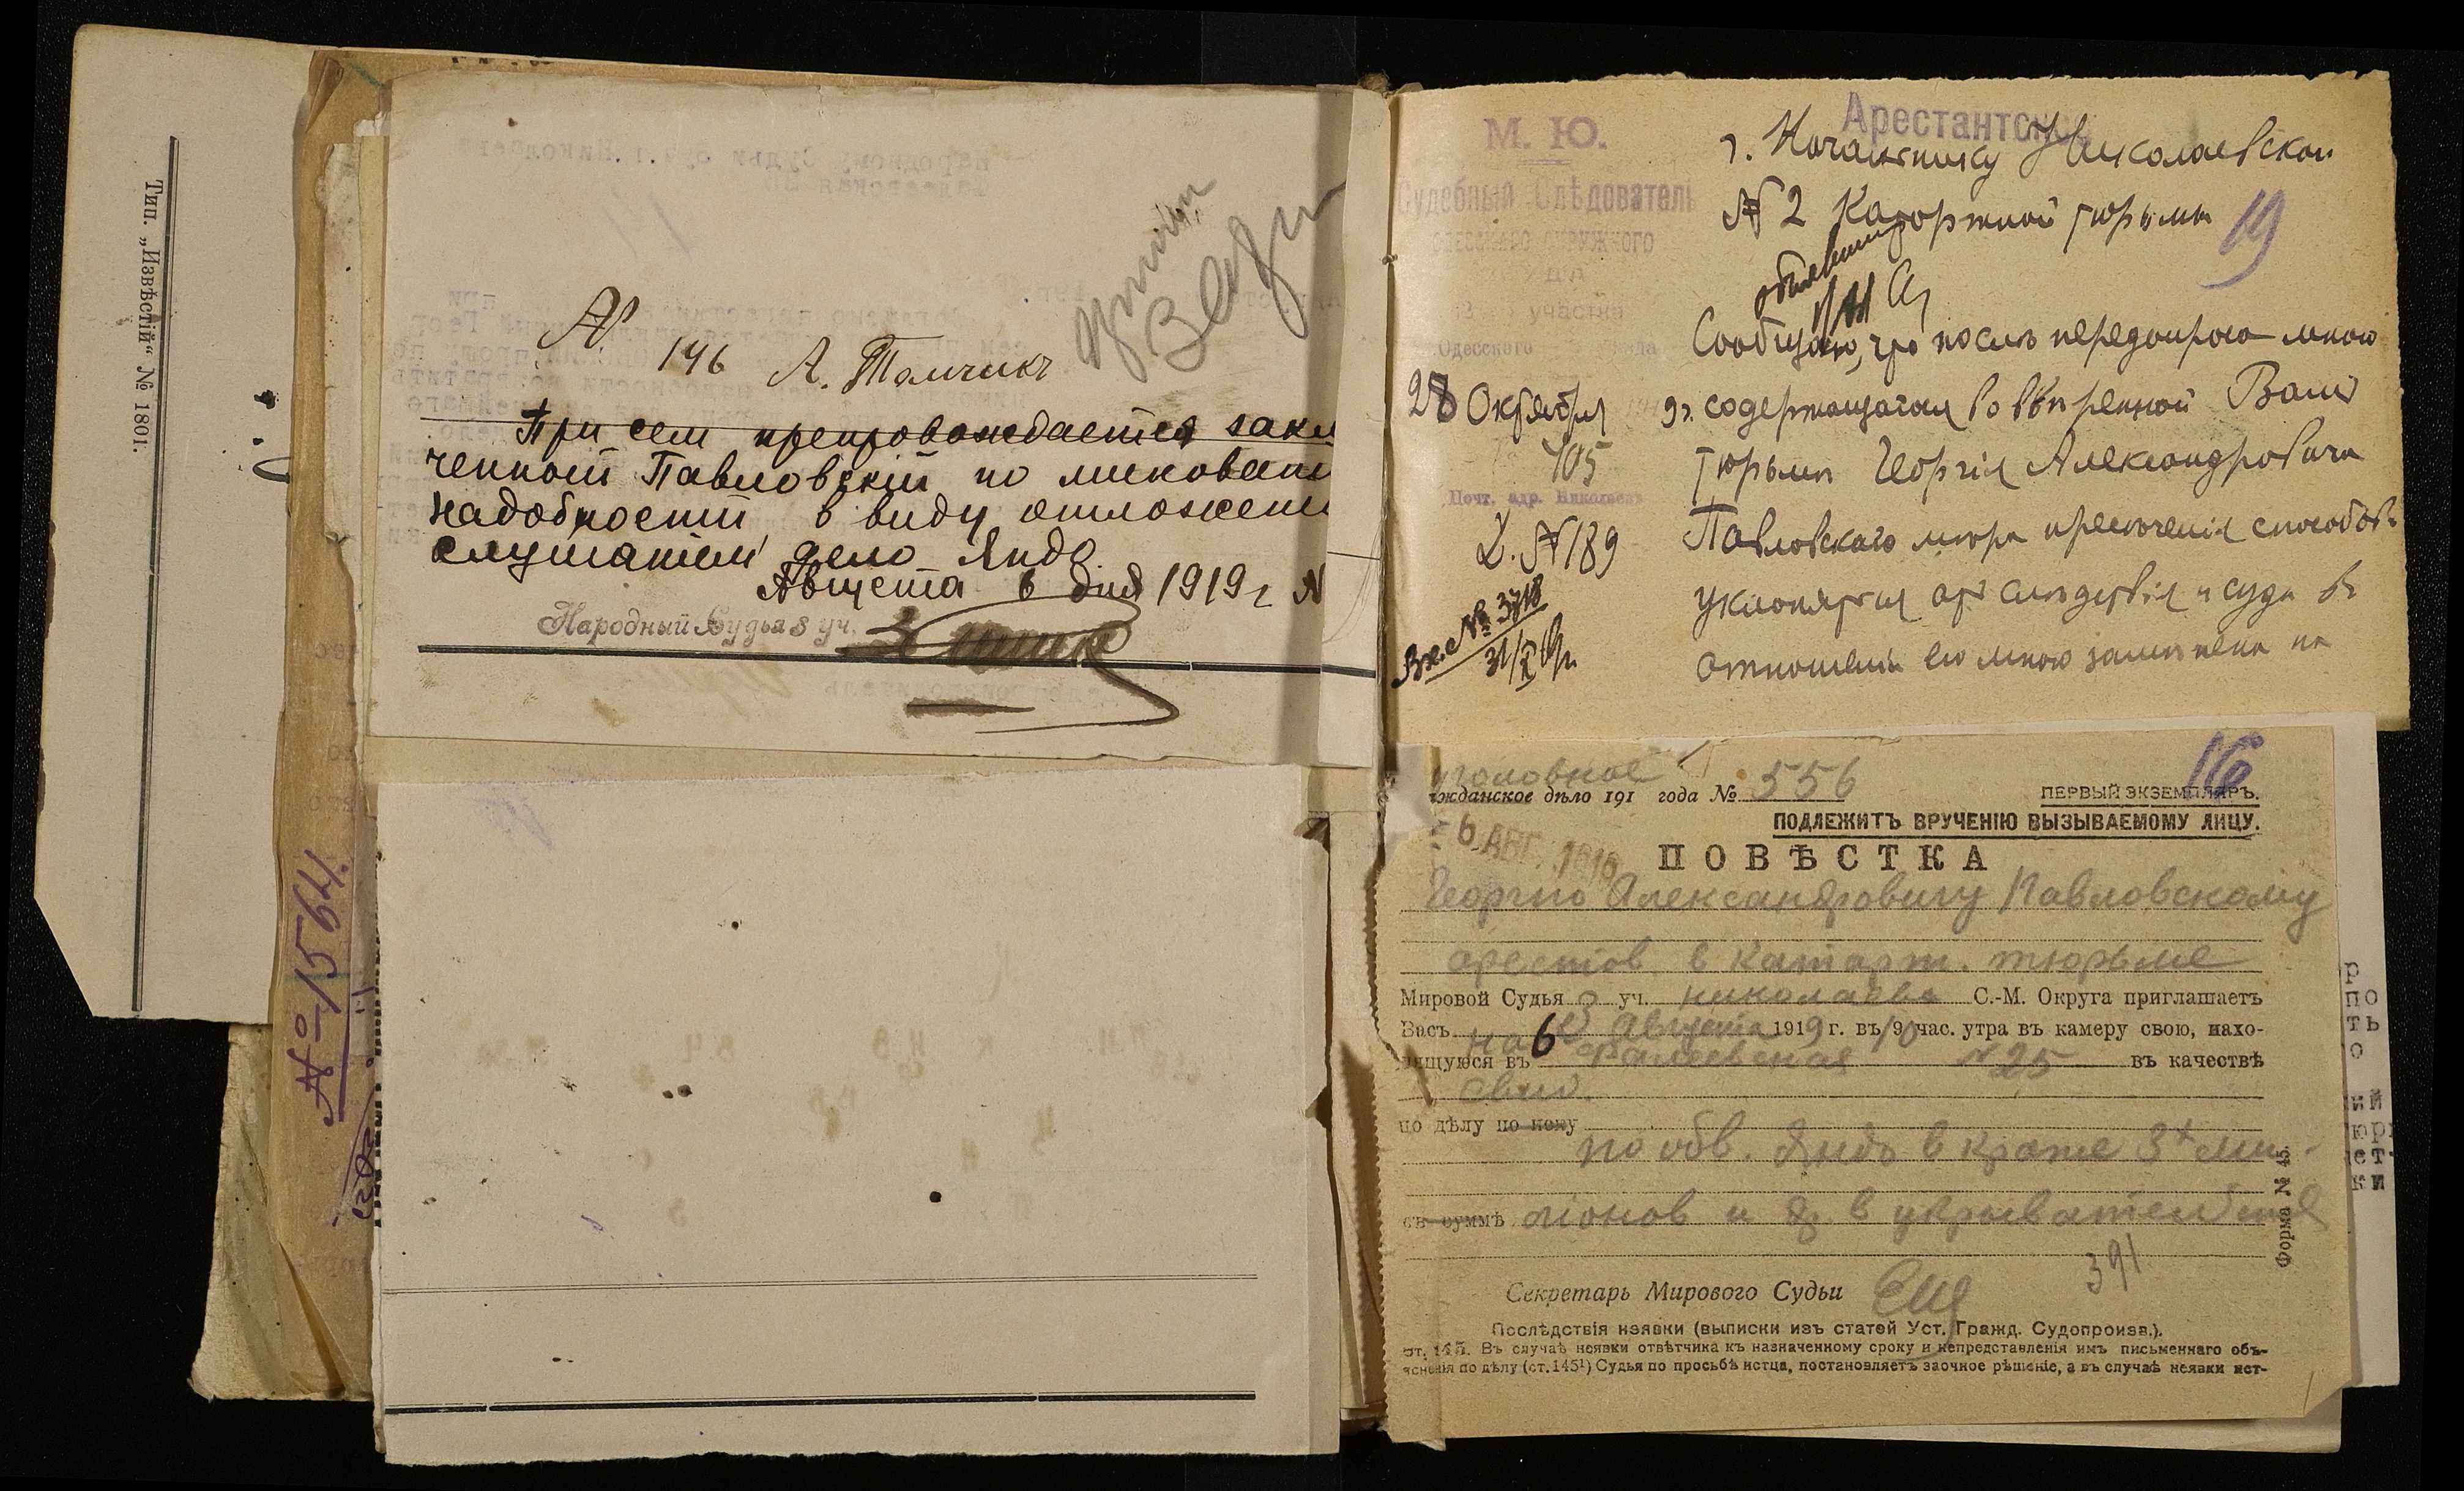 Тип. „Извѣстій“ № 1801.
№ 1564.
№
146 А. Томчикъ
При сем препровождается закл
ченный Павловскiй по миновани
надобности в виду отложени
слушанием дело Яндо
Августа 6 дня 1919 г. N
Народный Судья 3 уч.
Арестантское
М. Ю.
Судебный Слѣдователь
окружного
участка
Одесского
28 Октября 9 г.
405
Почт. адр. Николаевъ
Д. № 189
Вх. № 3718
31/X 19 г.
г. Начальнику Николаевской
№ 2 Каторжной тюрьмы
19
объявить
Сообщаю, что послѣ передопроса мною
содержащагося во ввѣренной Вамъ
тюрьмѣ Георгія Александровича
Павловскаго мѣра пресѣченія способовъ
уклоняться отъ слѣдствія и суда въ
отношеніи его мною замѣнена на
16
уголовное
жданское дѣло 191 года № 556
ПЕРВЫЙ ЭКЗЕМПЛЯРЪ.
ПОДЛЕЖИТЪ ВРУЧЕНІЮ ВЫЗЫВАЕМОМУ ЛИЦУ.
6 АВГ. 1919
ПОВѢСТКА
Георгию Александровичу Павловскому
арестов. в каторж. тюрьме
Мировой Судья 3 уч. Николаева С.-М. Округа приглашаетъ
Васъ на 6 Августа 1919 г. въ 9/10 час. утра въ камеру свою, нахо-
дящуюся въ Фалеевская № 25 въ качествѣ
свид.
по дѣлу по иску
по обв. Яндо в краже 3х мил-
съ суммѣ лионов и др. в укрывательстве
391
Секретарь Мирового Судьи
Послѣдствія неявки (выписки изъ статей Уст. Гражд. Судопроизв.).
ст. 145. Въ случаѣ неявки отвѣтчика къ назначенному сроку и непредставленія имъ письменнаго объ-
ясненія по дѣлу (ст. 145¹) Судья по просьбѣ истца, постановляетъ заочное рѣшеніе, а въ случаѣ неявки ист-
Форма № 45.